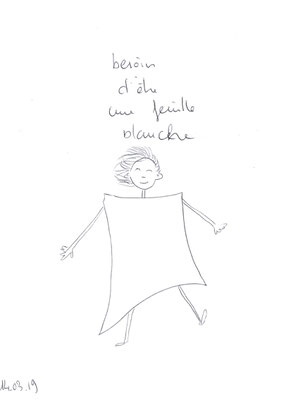 besoin
d'être
une feuille
blanche
.03.19